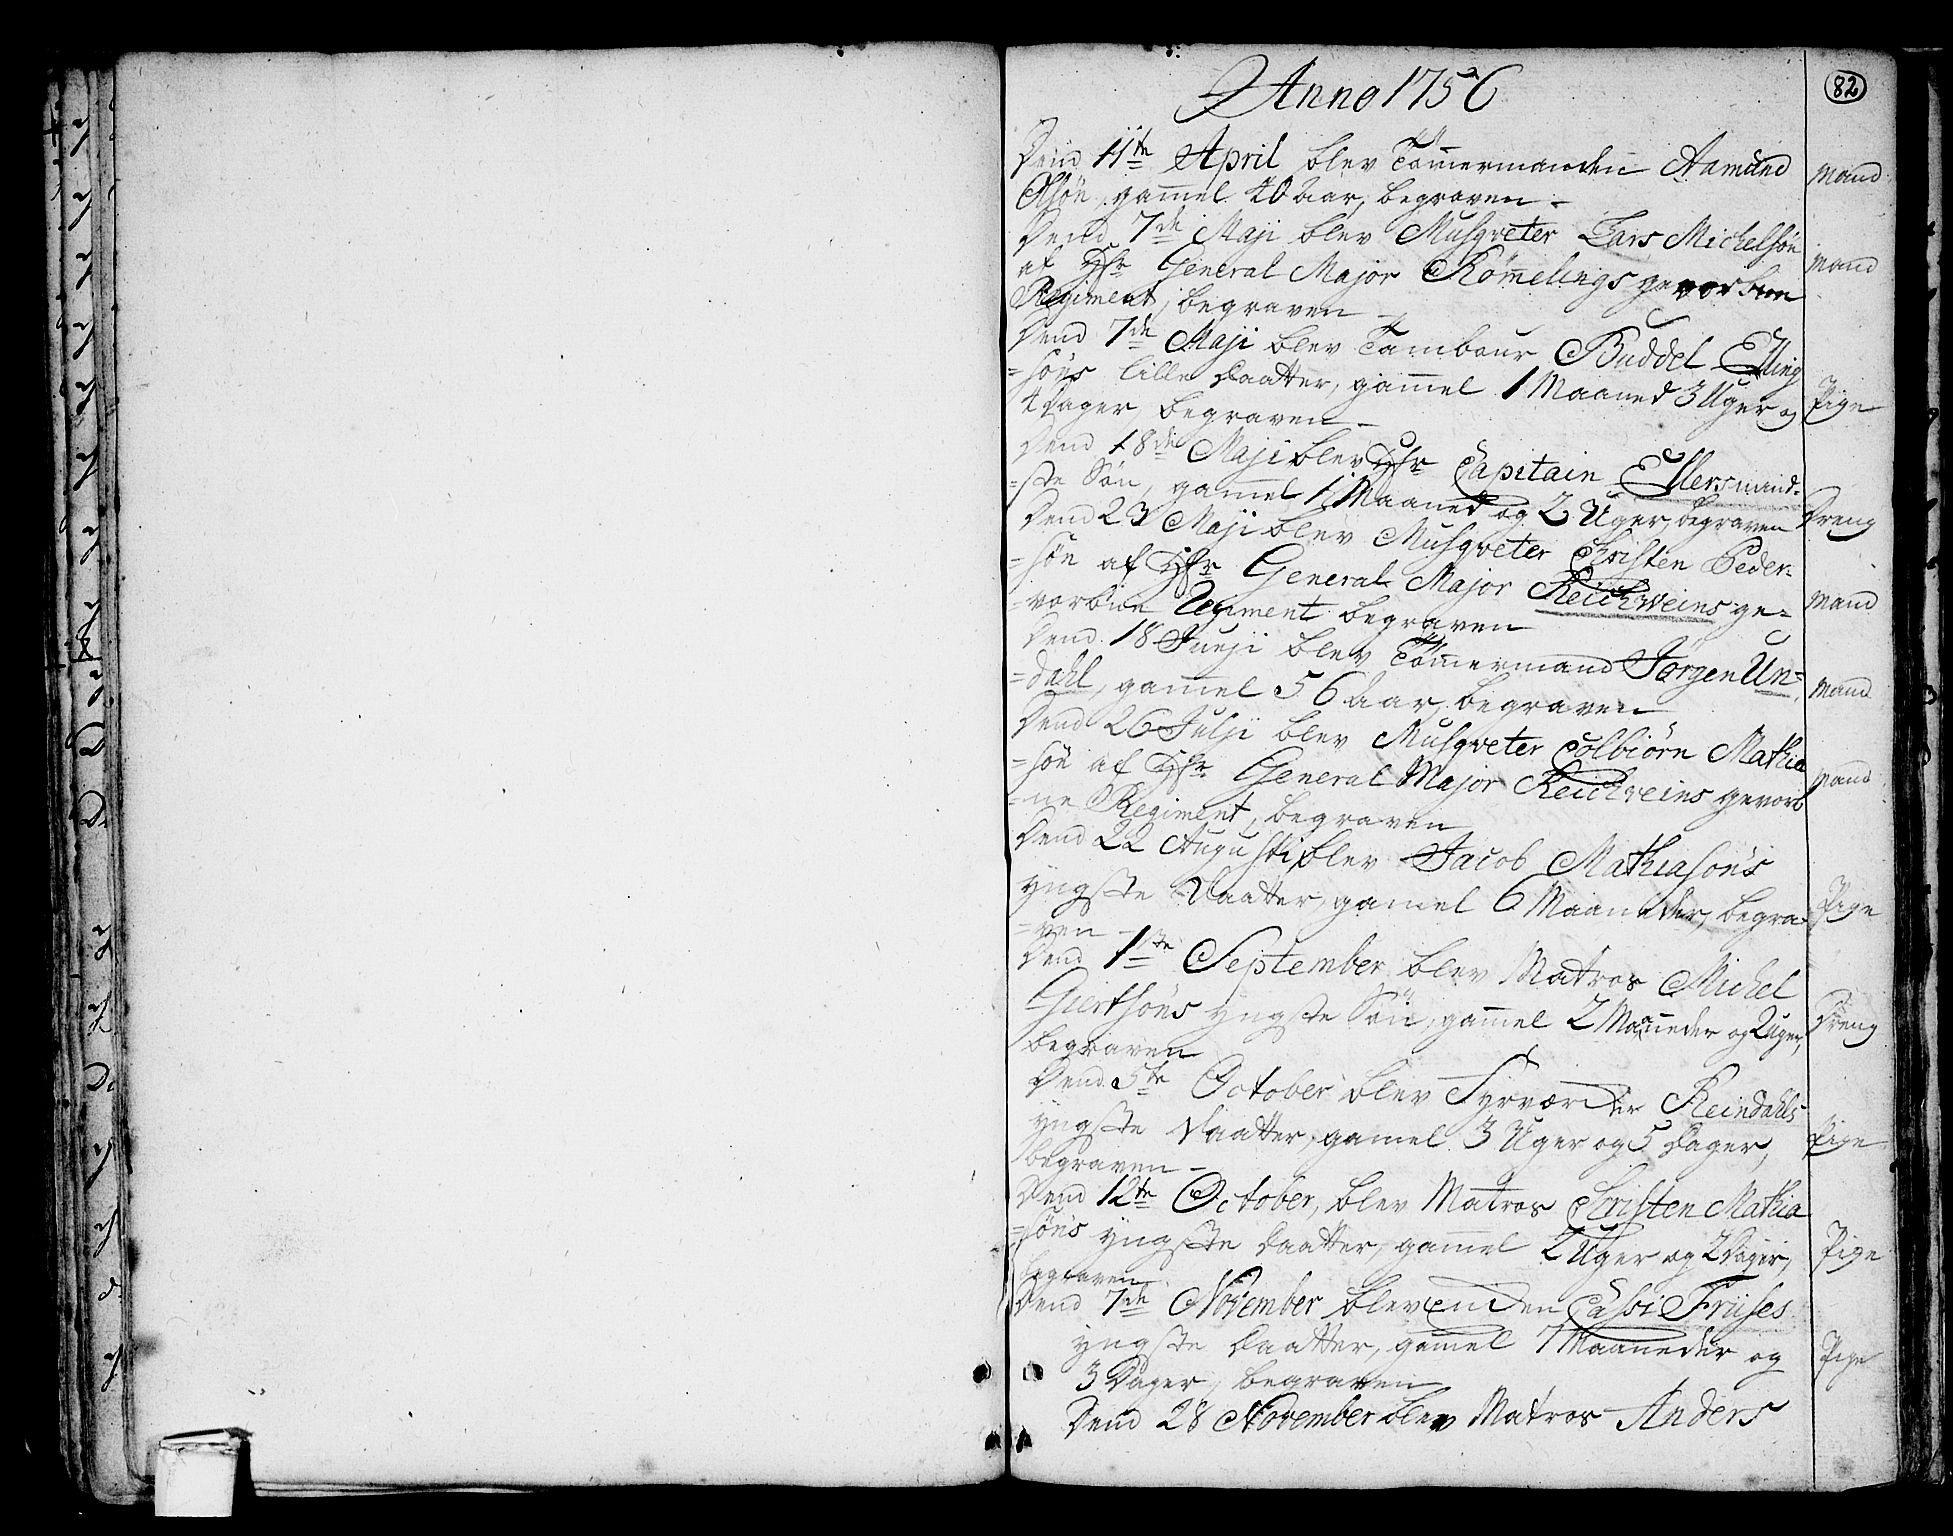 Anno 1756
82
Dend 11te April blev Tømmermanden Aamund
Olsøn, gammel 40 Aar, begraven - mand
Dend 7de Maji blev Musqveter Lars Michelsøn
af Hr. General Major Rømelings gevorbene mand
Regiment, begraven -
Dend 7de Maji blev Tambour Buddel Elling
=søns lille Daatter, gammel 1 Maaned 3 Uger og Pige
4 Dager, begraven -
Dend 18de Maji blev Hr. Capitain Ellers mind=
=ste Søn, gammel 1 Maaned og 2 Uger, begraven Dreng
Dend 23 Maji blev Musqveter Christen Peder=
=søn af Hr. General Major Reichweins ge=
=vorbne Regiment begraven mand
Dend 18 Junji blev Tømmermand Jørgen Un=
=dahl, gammel 56 Aar, begraven mand
Dend 26 Julji blev Musqveter Tolbiørn Mathia
=søn af Hr. General Major Reichveins gevorb mand
=ne Regiment, begraven
Dend 22 Augusti, blev Jacob Mathiasøns
yngste Daatter, gamel 6 Maaneder, begra= Pige
=ven -
Dend 1ste September blev Matros Michel
Giertsøns yngste Søn, gammel 2 Maaneder og 2 Uger, Dreng
begraven
Dend 5te October blev Fyrværder Reindahls
yngste Daatter, gamel 3 Uger og 5 Dager, Pige
begraven -
Dend 12te October, blev Matros Christen Mathia
=søns yngste Daatter, gammel 2 Uger og 2 Dager, Pige
begraven
Dend 7de November blev Enden Cassi Friises
yngste Daatter, gamel 7 Maaneder og Pige
3 Dager, begraven
Dend 28 November blev Matros Anders